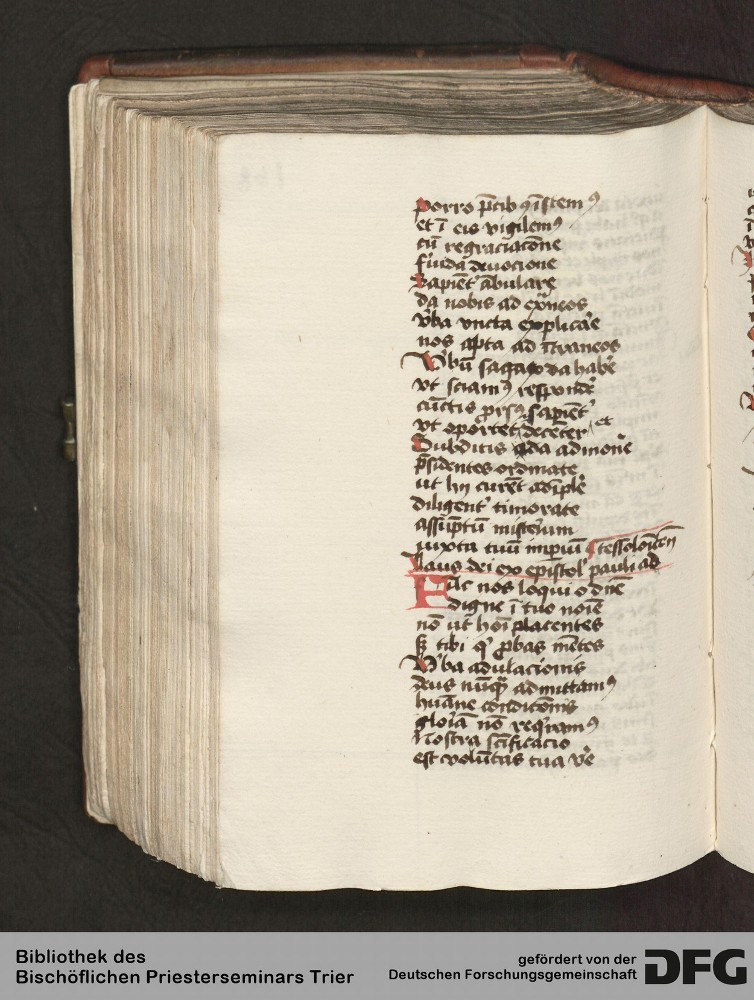 Porro p̄cib9 īstem9
et ī eis vigilem9
cū regraciacōne
deuocione
Sapient᷑ ābulare
da nobis ad ext̄neos
v̄ba vncta explicar̄e
nos apta ad īt̄raneos
Vbū saga da hab̄e
vt sciam9 respond᷑e
cūctis prs9 sapient᷑
vt oportet decēter et
Subditis da admonēre
p̄sidentes ordinate
ut hii curēt adīplē
diligent᷑ timorate
assūptū mist᷑ium
iuxta tuū imp̄iū
Laus dei ex epīstol᷑ pauli ad tessolonicen̄
Fac nos loqui o dn̄e
digne ī tuo noīe
nō ut hoī placentes
s̄ tibi q᷑ ꝓbas mētes
Vba adulacionis
deus nūq̄ admittam9
huāne condicōnis
gloriā nō req̄ram9
Nostra scīficacio
est voluntas tua v̄e
Bibliothek des
Bischöflichen Priesterseminars Trier
gefördert von der
Deutschen Forschungsgemeinschaft
DFG